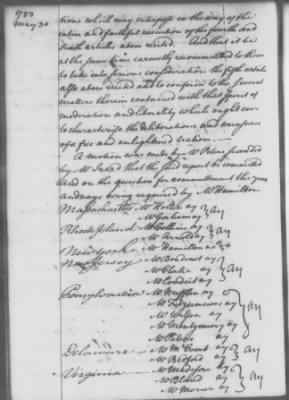 1783
May 30
tions which may interpose in the way of the
entire and faithful execution of the fourth and
sixth articles above recited. And that it be
at the same time earnestly recommended to them
to take into serious consideration the fifth article
also above recited and to conform to the several
matters therein contained with that spirit of
moderation and liberality which ought ever
to characterise the deliberations and measures
of a free and enlightened nation.
A motion was made by Mr Peters seconded
by Mr that the said report be committed
And on the question for commitment the yeas
and nays being required by Mr Hamilton
Massachusetts Mr Holten ay } ay
Mr Gorham ay
Rhode Island Mr Collins ay } ay
Mr Arnold ay
New York Mr Hamilton ay
New Jersey Mr Boudinot ay } ay
Mr Clark ay
Mr Condict ay
Pensylvania Mr Mifflin ay } ay
Mr Fitzsimmons ay
Mr Wilson ay
Mr Montgomery ay
Mr Peters ay
Delaware Mr McComb ay } ay
Mr Bedford ay
Virginia Mr Madison ay } ay
Mr Bland ay
Mr Mercer ay